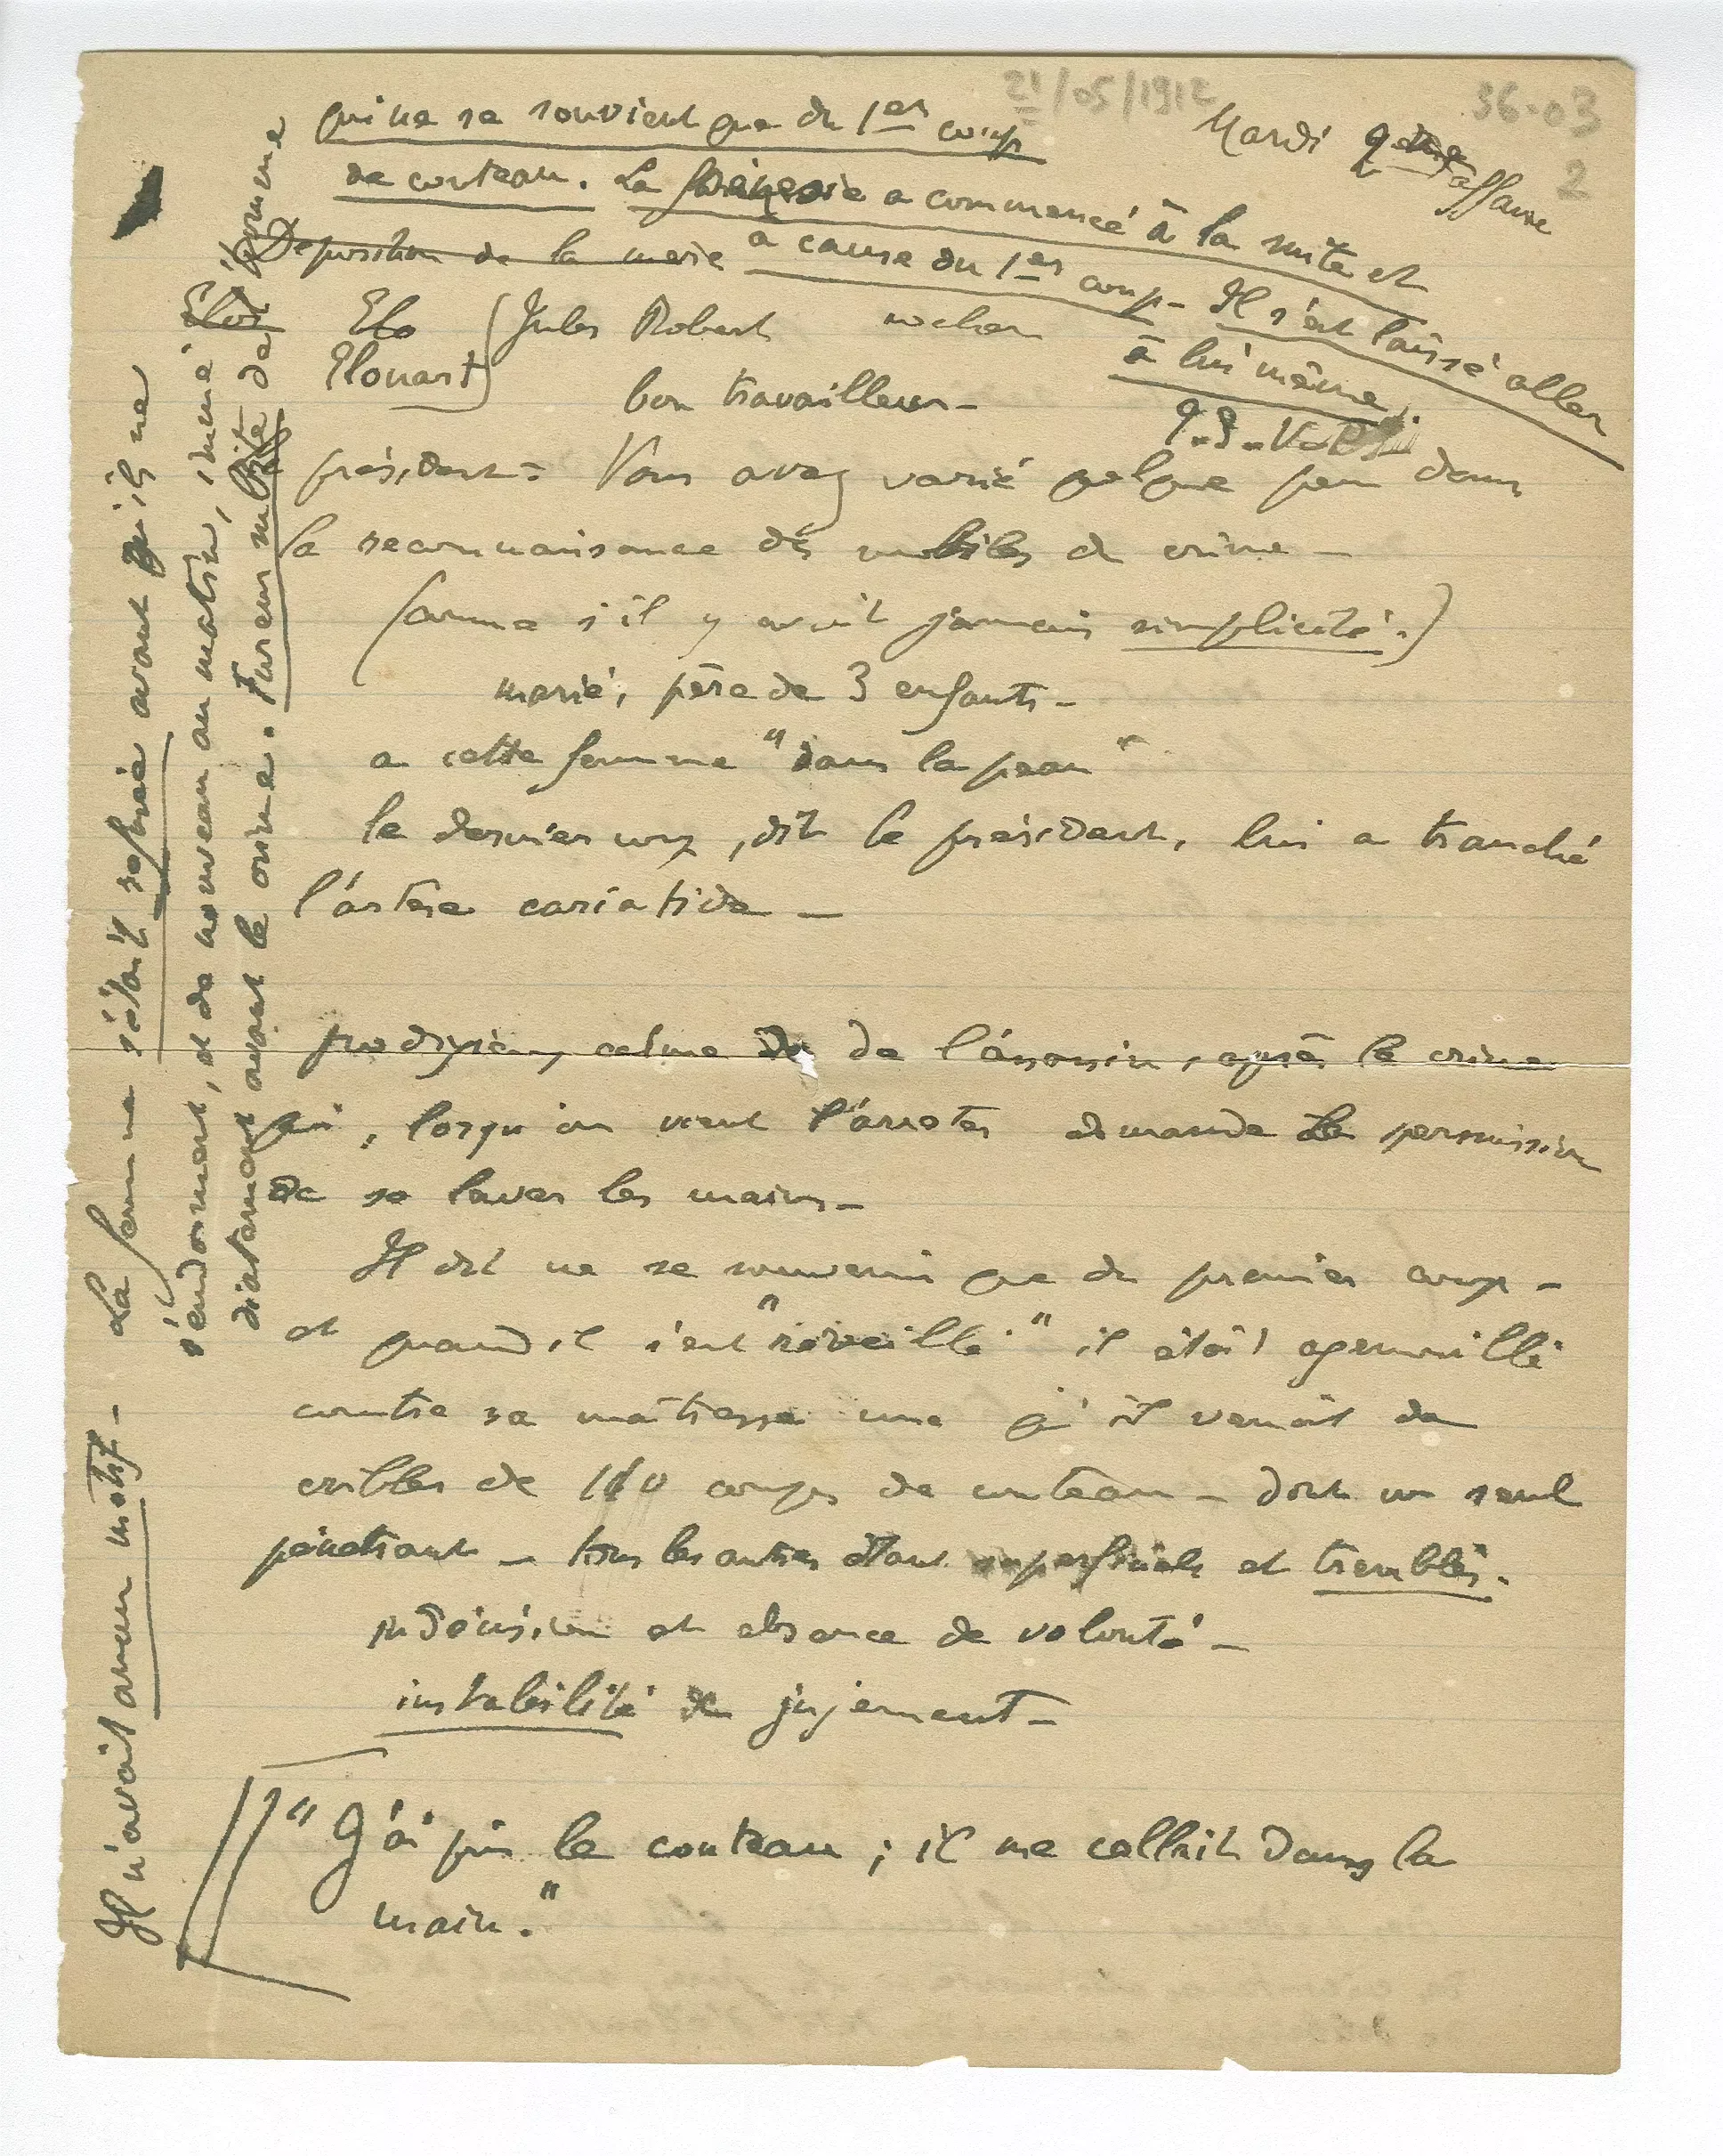 21/05/1912
36-03
2
Mardi 9ème affaire
qui ne se souvient que du 1er coup
de couteau. La frénésie a commencé à la suite et
à cause du 1er coup - Il s'est laissé aller
à lui même
Déposition de la mère
Elo
Elouart (Jules Robert cocher
bon travailleur -
président = Vous avez varié quelque peu dans
la reconnaissance des mobiles du crime -
(comme s'il y avait jamais simplicité.)
marié, père de 3 enfants -
a cette femme "dans la peau"
le dernier coup, dit le président, lui a tranché
l'artère cariatide -
prodigieux calme de de l'assassin, après le crime
qui, lorsqu'on vient l'arrêter demande la permission
de se laver les mains -
Il dit ne se souvenir que du premier coup -
et quand il s'est "réveillé" il était agenouillé
contre sa maîtresse une qu'il venait de
cribler de 110 coups de couteau - dont un seul
pénétrant - tous les autres étant superficiels et tremblés.
indécision et absence de volonté -
instabilité du jugement -
"J'ai pris le couteau ; il me collait dans la
main."
Il n'avait aucun motif - La femme ne s'était refusée avant qu'ils ne
s'endorment, et de nouveau au matin, immé
diatement avant le crime. Fureur subite de l'homme